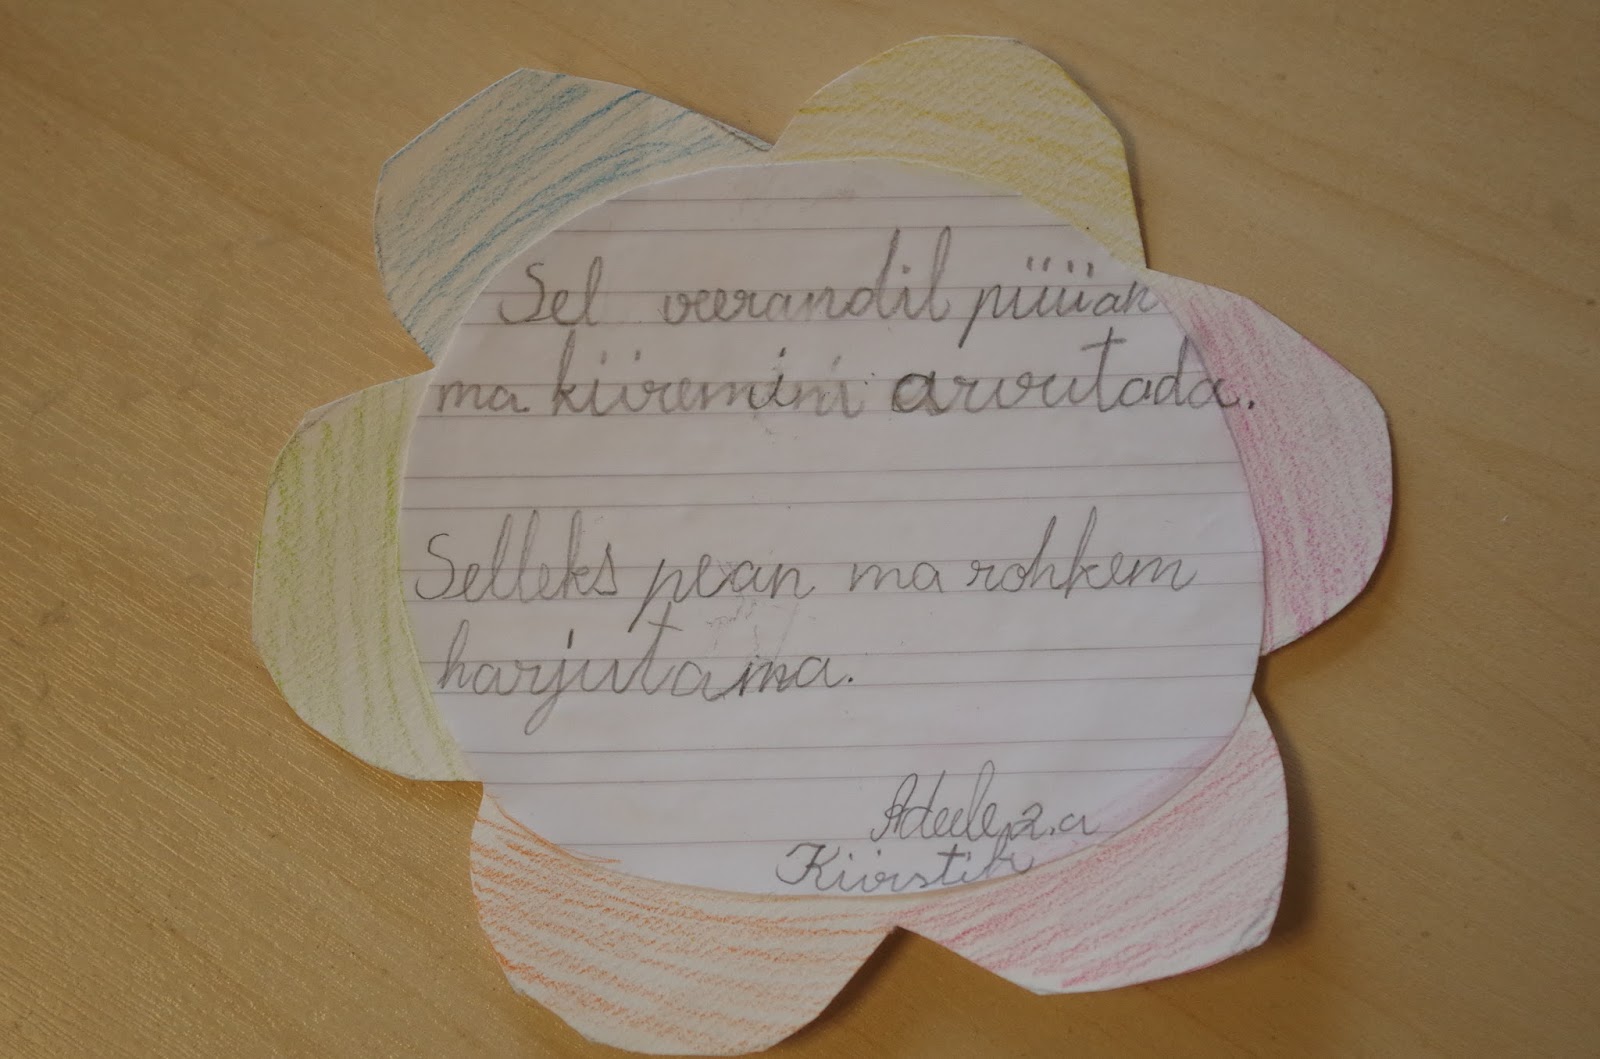 Sel veerandil püüan
ma kiiremini arvutada.
Selleks pean ma rohkem
harjutama.
Adeele 2.a
Kiivistik